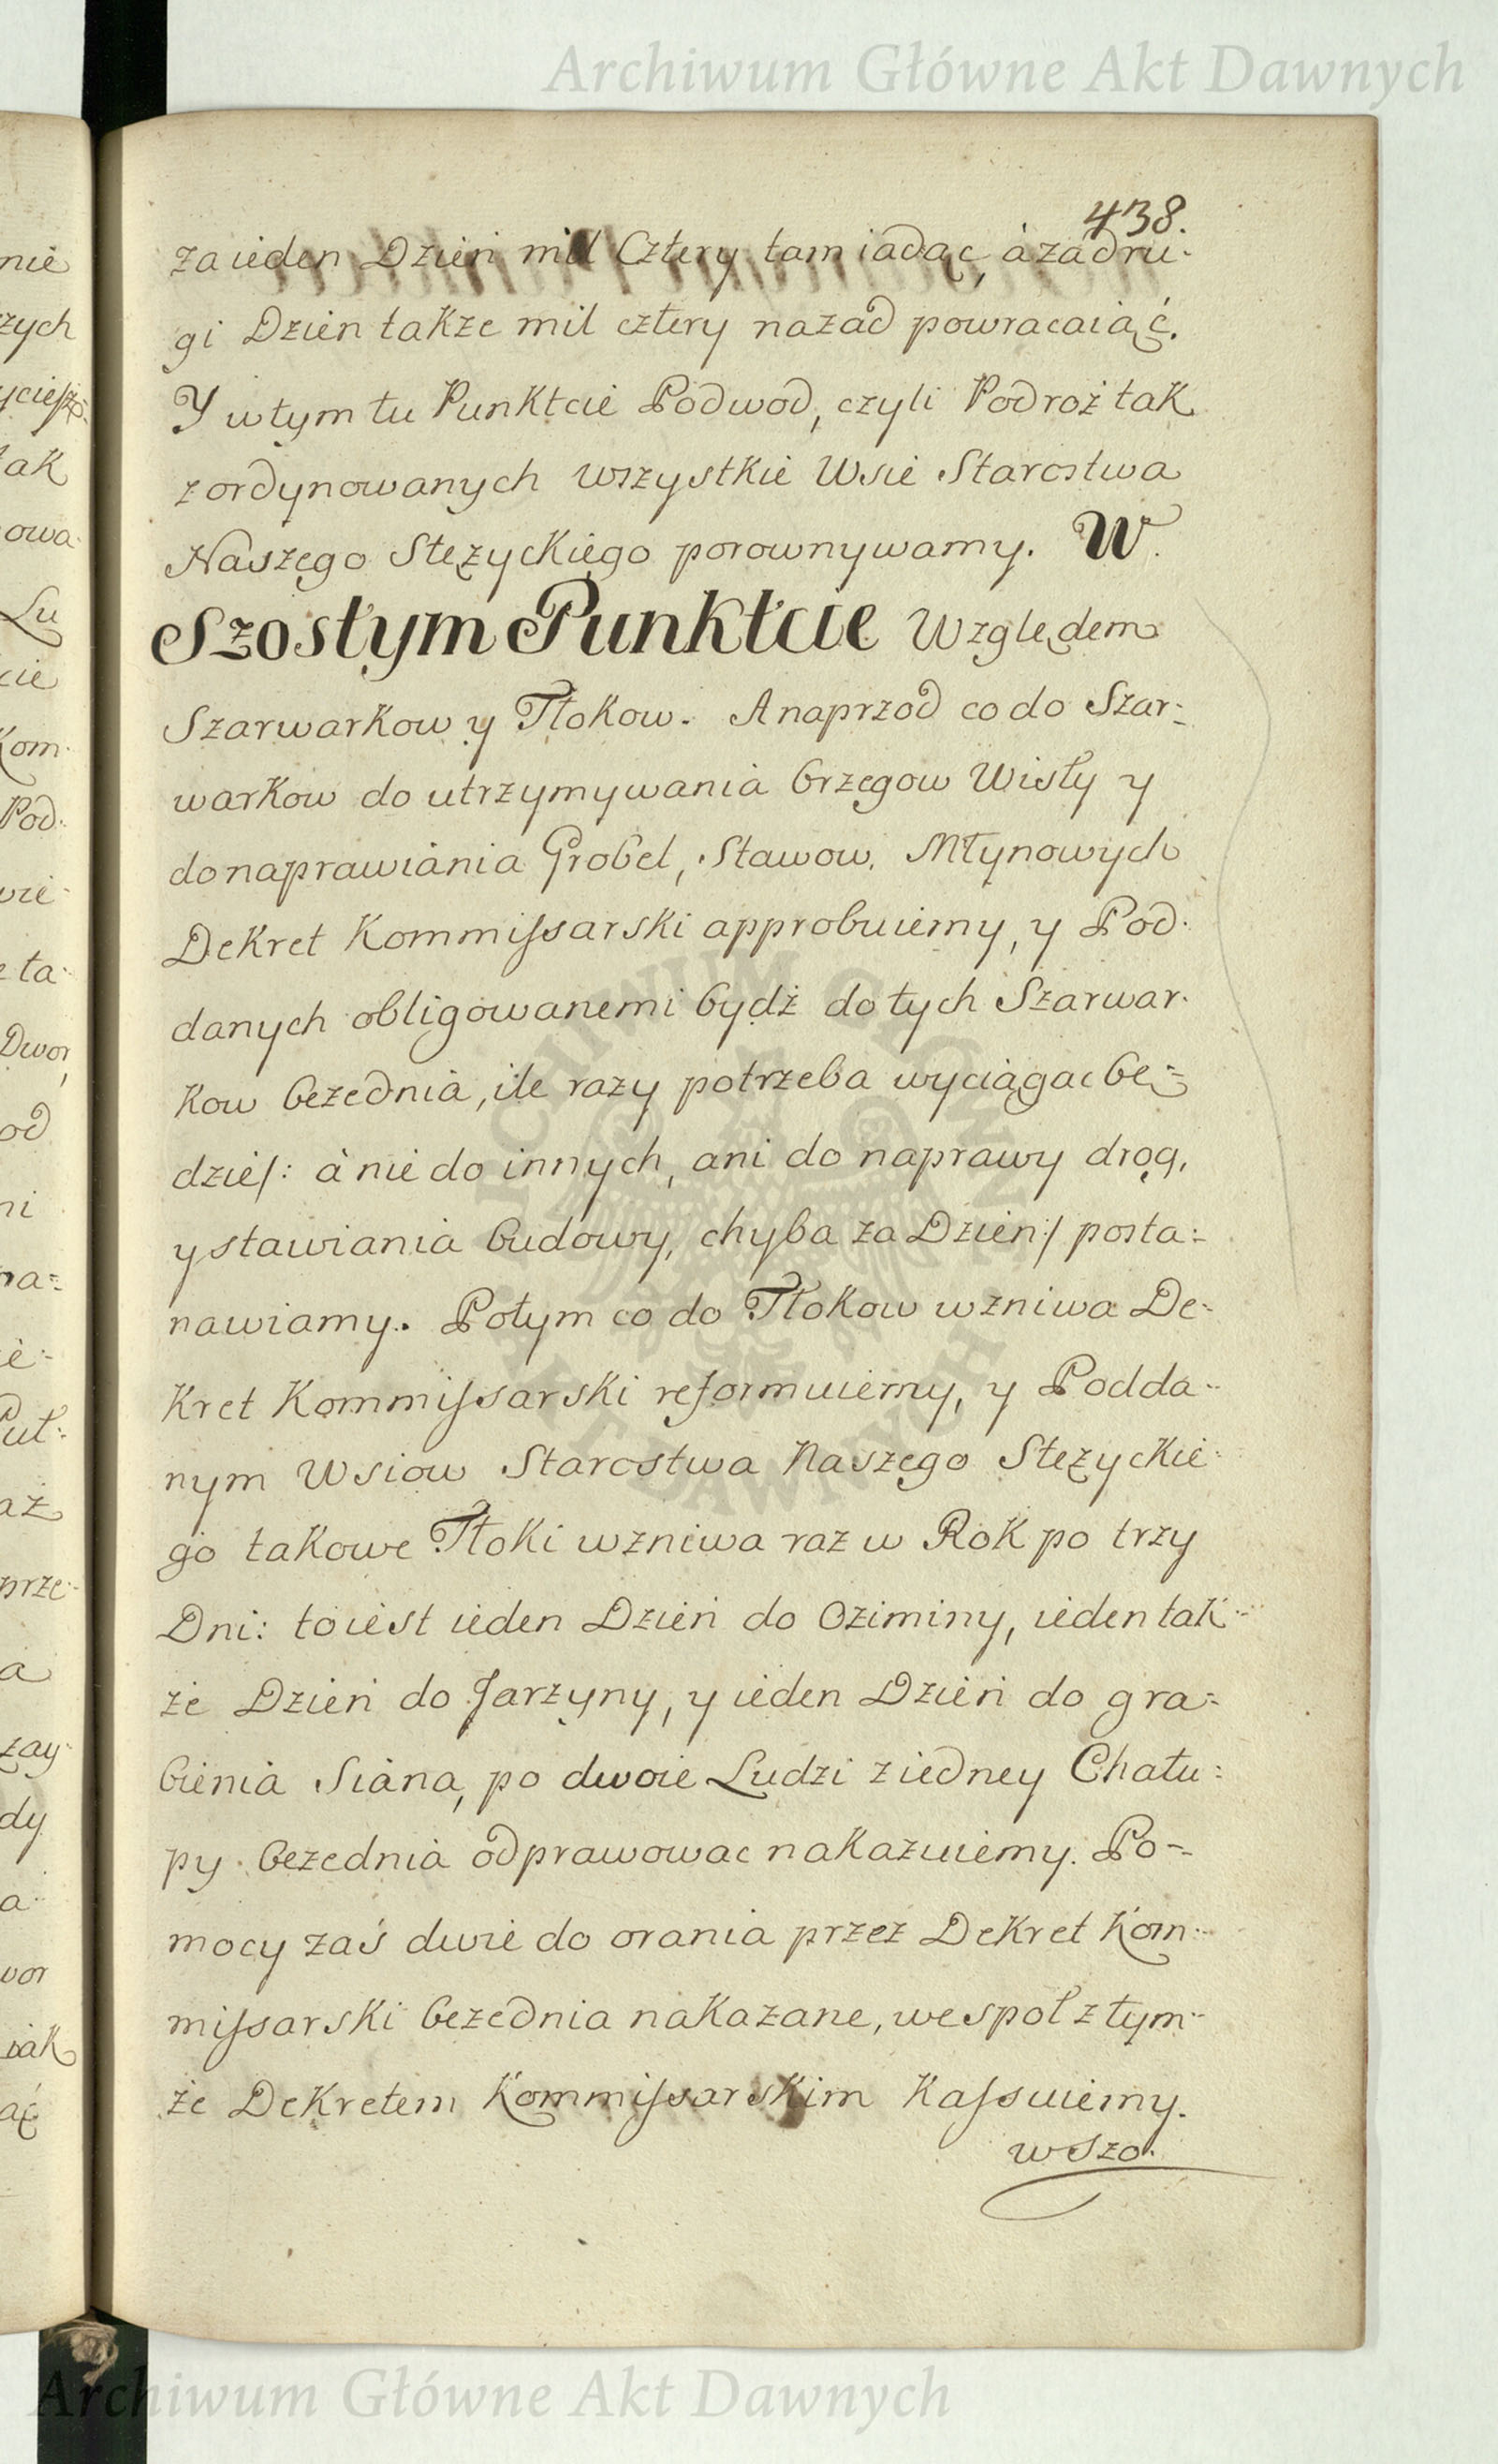 Archiwum Główne Akt Dawnych
438.
za ieden Dzień mil Cztery tam iadąc, à zadru:
gi Dzien takze mil cztery nazad powracaiąć.
Y w tym tu Punktcie Podwod, czyli Podroż tak
zordynowanych wszystkie Wsie Starostwa
Naszego Stęzyckiego porownywamy. W
Szostym Punktcie Względem
Szarwarkow y Tłokow. A naprzod co do Szar:
warkow do utrzymywania brzegow Wisły y
do naprawiania Grobel, Stawow, Młynowych
Dekret Kommissarski approbuiemy, y Pod:
danych obligowanemi bydż do tych Szarwar:
kow bezednia, ile razy potrzeba wyciągac bę:
dzie/: à nie do innych, ani do naprawy drog,
y stawiania budowy, chyba za Dzien:/ posta:
nawiamy. Potym co do Tłokow w zniwa De:
kret Kommissarski reformuiemy, y Podda:
nym Wsiow Starostwa Naszego Stęzyckie:
go takowe Tłoki w zniwa raz w Rok po trzy
Dni: to iest ieden Dzień do Oziminy, ieden tak:
że Dzień do Jarzyny, y ieden Dzień do gra:
bienia Siana, po dwoie Ludzi z iedney Chału:
py bezednia odprawowac nakazuiemy. Po:
mocy zaś dwie do orania przez Dekret Kom:
missarski bezednia nakazane, wespoł z tym:
że Dekretem Kommissarskim Kassuiemy.
w Szo:
nie
zych
yciesz:
tak
owa:
Lu
cie
Kom:
Pod:
wie:
ta:
Dwor,
od
ni
na:
ie:
Puł:
aż
prze:
a
zay:
dy
a:
wor
iak
ać
ARCHIWUM GŁÓWNE AKT DAWNYCH
Archiwum Główne Akt Dawnych